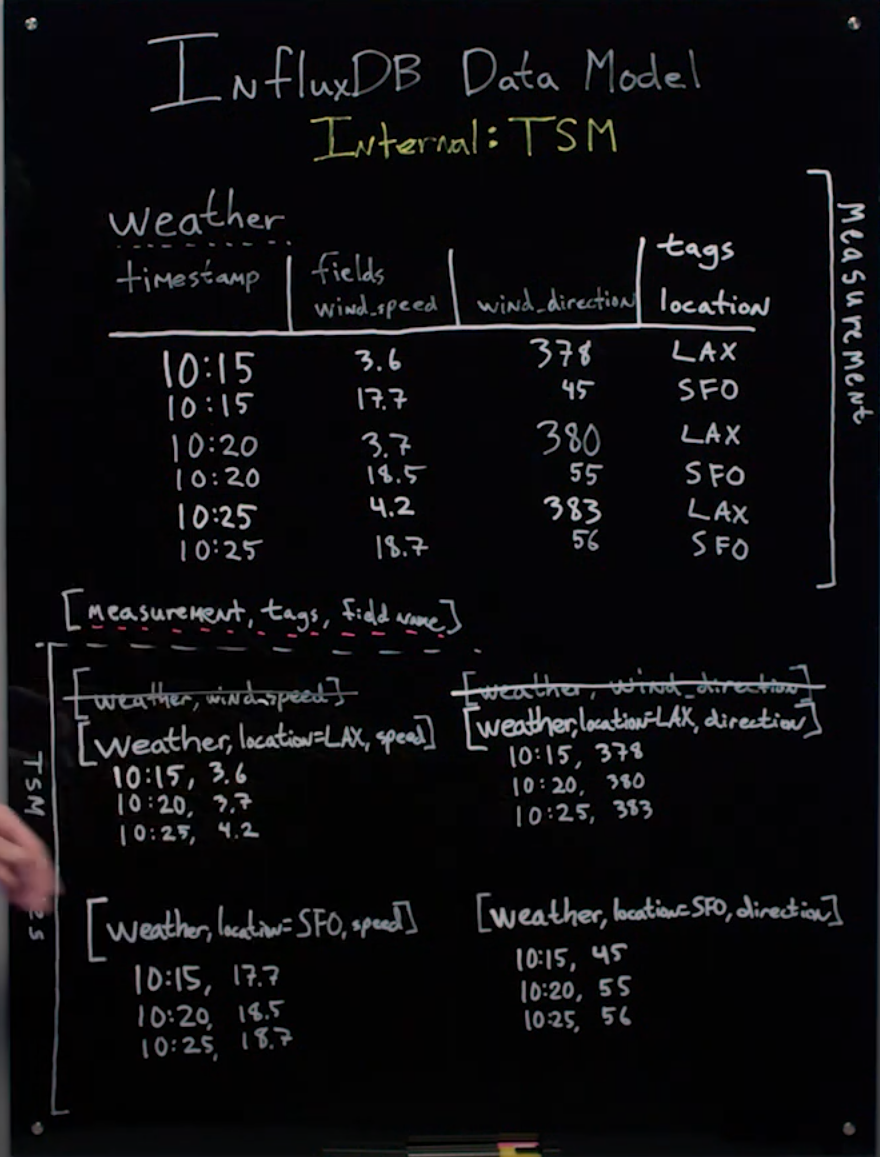 InfluxDB Data Model
Internal: TSM
weather
timestamp | fields wind_speed | wind_direction | tags location
10:15 3.6 378 LAX
10:15 17.7 45 SFO
10:20 3.7 380 LAX
10:20 18.5 55 SFO
10:25 4.2 383 LAX
10:25 18.7 56 SFO
Measurement
[measurement, tags, field name]
TSM
[weather, wind_speed]
[weather, location=LAX, speed]
10:15, 3.6
10:20, 3.7
10:25, 4.2
[weather, wind_direction]
[weather, location=LAX, direction]
10:15, 378
10:20, 380
10:25, 383
[weather, location=SFO, speed]
10:15, 17.7
10:20, 18.5
10:25, 18.7
[weather, location=SFO, direction]
10:15, 45
10:20, 55
10:25, 56